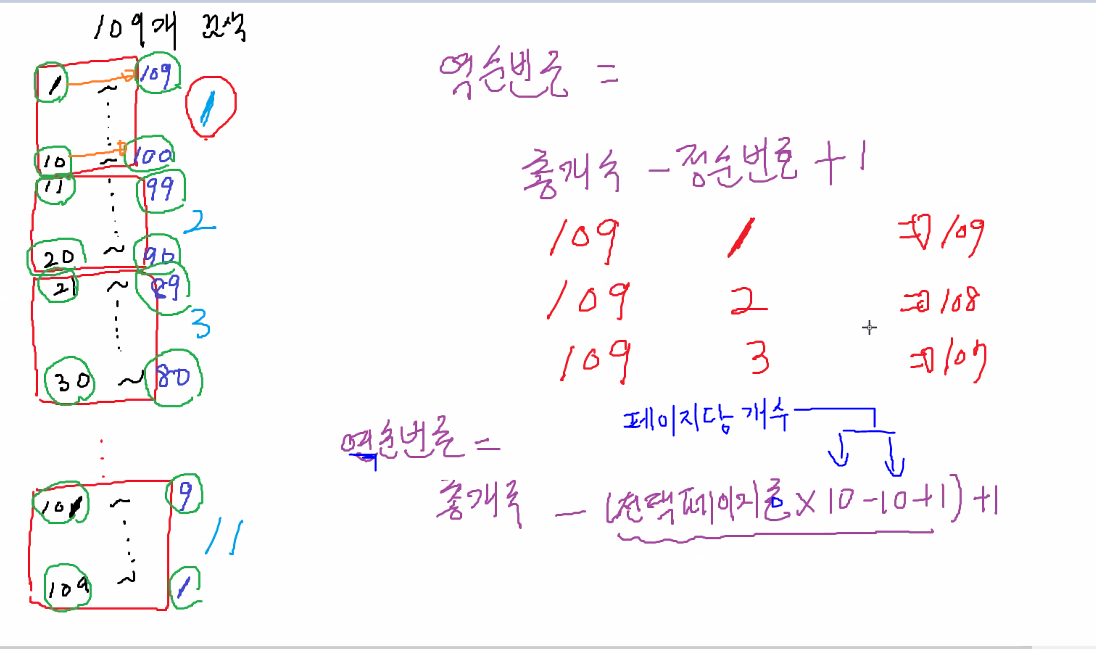 109개 검색
1 ~ 109
10 ~ 100
1
11 99
20 ~ 90
2
21 ~ 89
30 ~ 80
3
101 ~ 9
109 ~ 1
11
역순번호 =
총개수 - 정순번호 + 1
109 1 ⇒ 109
109 2 ⇒ 108
109 3 ⇒ 107
페이지당 개수
역순번호 =
총개수 - (선택페이지번호 × 10 - 10 + 1) + 1